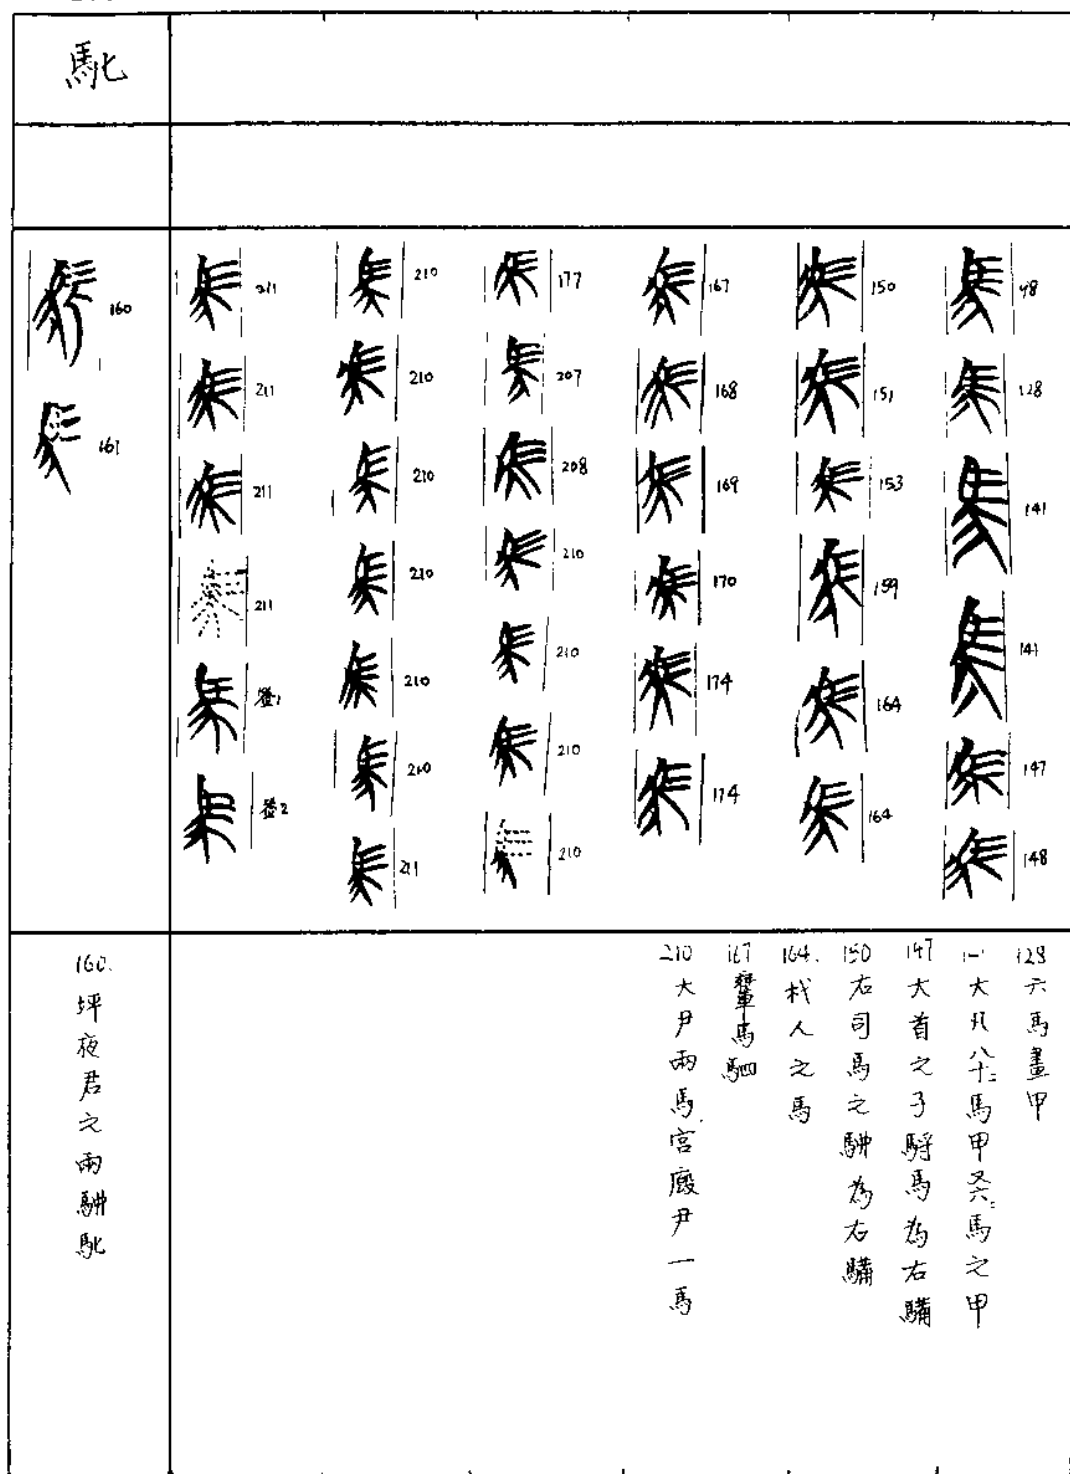 ⿰馬匕
98
128
141
141
147
148
150
151
153
159
164
164
167
168
169
170
174
174
177
207
208
210
210
210
210
210
210
210
210
210
210
211
211
211
211
211
簽1
簽2
160
161
128 六馬畫甲
大凡八十=馬甲又六=馬之甲
147 大首之子馬為右
150 右司馬之為右
164. 杙人之馬
167 馬駟
210 大尹兩馬宮廄尹一馬
160. 坪夜君之兩⿰馬匕